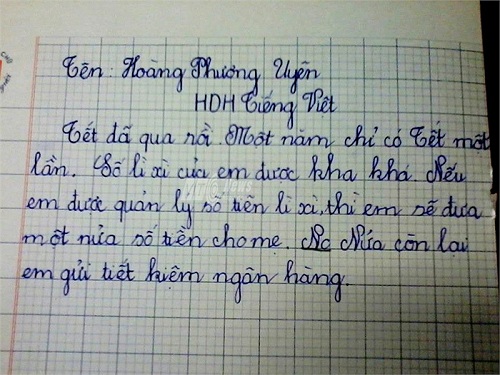 Tên: Hoàng Phương Uyên
HDH Tiếng Việt
Tết đã qua rồi. Một năm chỉ có Tết một
lần. Số lì xì của em được kha khá. Nếu
em được quản lý số tiền lì xì, thì em sẽ đưa
một nửa số tiền cho mẹ. Nc Nửa còn lại
em gửi tiết kiệm ngân hàng.